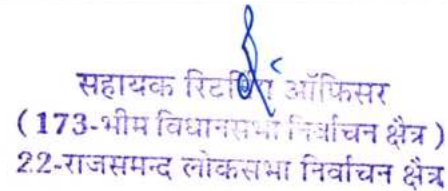 सहायक रिटर्निंग ऑफिसर
( 173-भीम विधानसभा निर्वाचन क्षैत्र )
22-राजसमन्द लोकसभा निर्वाचन क्षैत्र